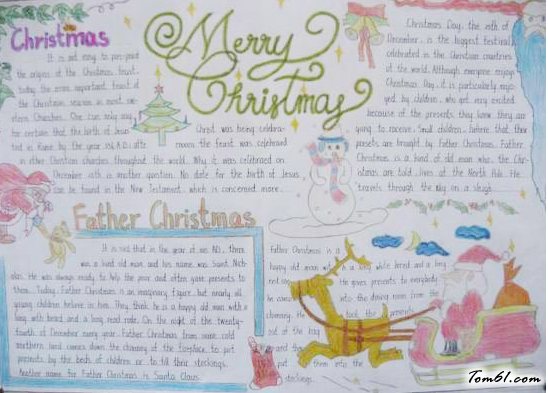 Christmas
It is not easy to pin-point
the origins of the Christmas feast,
today the most important feast of
the Christmas season in most wes-
tern Churches. One can only say
for certain that the birth of Jesus
Christ was being celebra-
ted in Rome by the year
in other Christian churches throughout the world. Why it was celebrated on
December 25th is another question. No date for the birth of Jesus
can be found in the New Testament, which is concerned more
Merry
Christmas
Christmas Day, the 25th of
December, is the biggest festival
celebrated in the Christian countries
of the world. Although everyone enjoys
Christmas Day, it is particularly enjo-
yed by children, who get very excited
because of the presents they know they are
going to receive. Small children believe that their
presents are brought by Father Christmas. Father
Christmas is a kind of old man who, the Chr-
istmas are told, lives at the North Pole. He
travels through the sky on a sleigh
Father Christmas
It is said that in the year of AD, there
was a kind old man and his name was Saint Nich-
olas. He was always ready to help the poor and often gave presents to
them. Today, Father Christmas is an imaginary figure, but nearly all
young children believe in him. They think he is a happy old man with a
long with beard and a long red robe. On the night of the twenty-
fourth of December every year, Father Christmas from some cold
northern land comes down the chimney of the fireplace to put
presents by the beds of children or to fill their stockings.
Another name for Father Christmas is Santa Claus.
Father Christmas is a
happy old man with a long white beard and a long
red
He gives presents to everybody
he comes into the dining room from the
chimney. He took the presents
out of the bag
and
put them into the
stockings.
Tom61.com